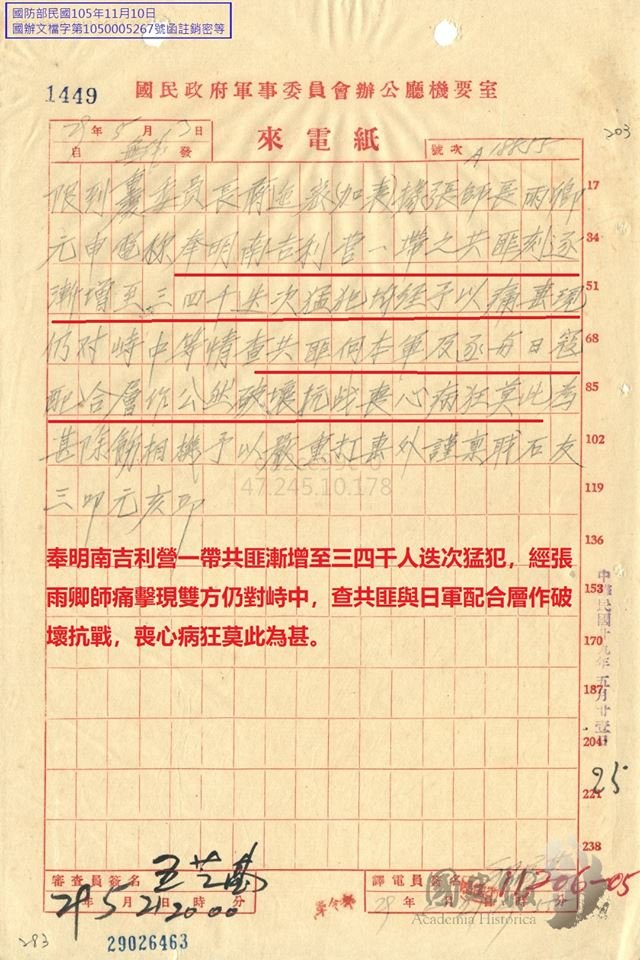 國防部民國105年11月10日
國辦文檔字第1050005267號函註銷密等
1449
國民政府軍事委員會辦公廳機要室
29年5月 日
自 發
來電紙
號次 A 18855
203
限到 委員長 張師長雨卿 17
元申電稱奉明南吉利營一帶之共匪刻逐 34
漸增至三四千迭次猛犯均經予以痛擊現 51
仍对峙中等情查共匪向本軍反逐每日寇 68
配合層作公然破壞抗战喪心病狂莫此為 85
甚除飭相機予以嚴重打擊外謹稟職石友 102
三叩元亥印 119
47.245.10.178
136
奉明南吉利營一帶共匪漸增至三四千人迭次猛犯，經張
雨卿師痛擊現雙方仍對峙中，查共匪與日軍配合層作破
壞抗戰，喪心病狂莫此為甚。
153
170
187
204
221
238
中華民國廿九年五月廿壹日
25
審查員簽名
29年5月21日20時00分
譯電員簽名
11206-05
年 月 日 時 分
國史館
Academia Historica
283
29026463